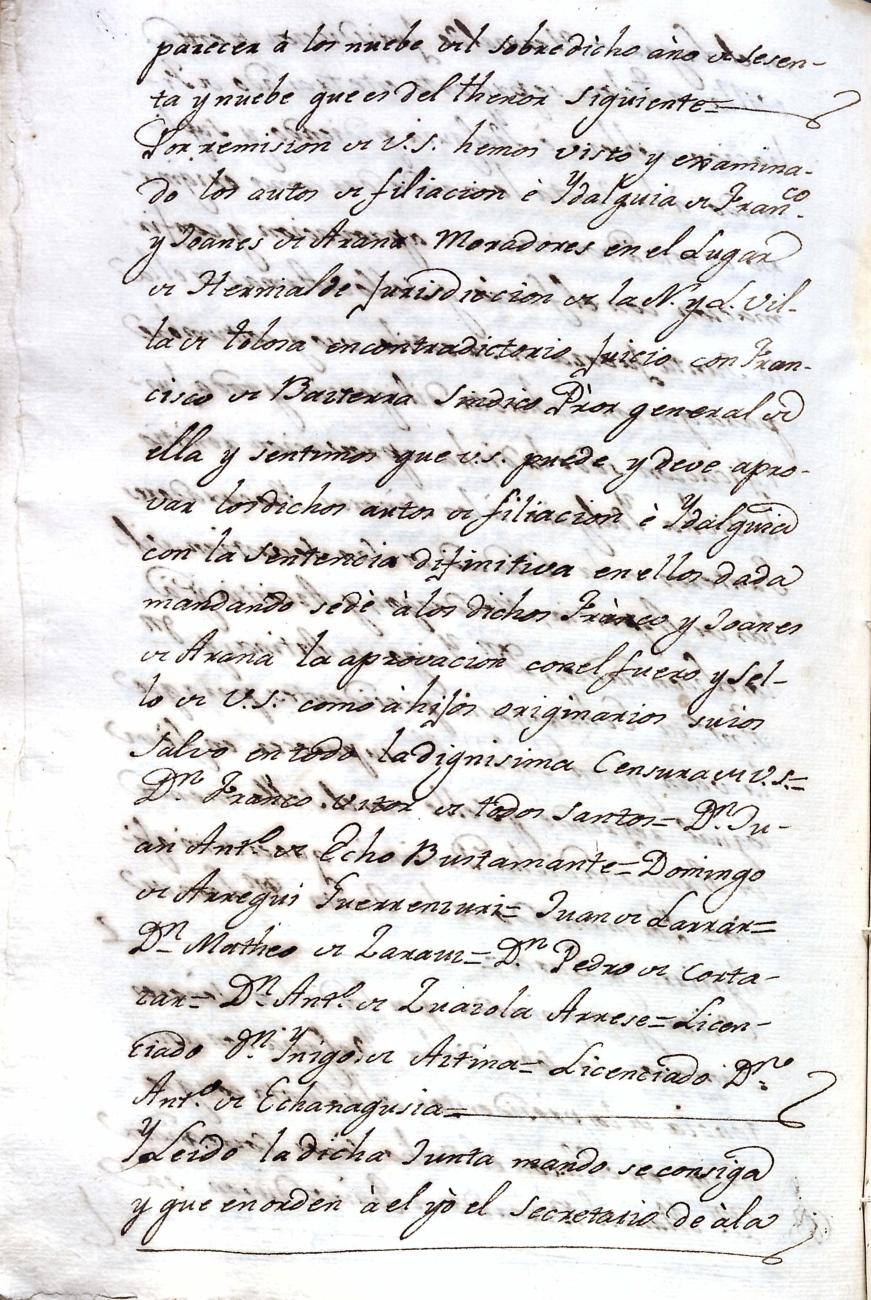 parecer à los nuebe del sobredicho año de sesen-
ta y nuebe que es del thenor siguiente=
Por remision de V.S. hemos visto y examina-
do los autos de filiacion è Ydalguia de Franco.
y Joanes de Arana Moradores en el Lugar
de Hernialde Jurisdiccion de la N. y L. Vil-
la de tolosa encontradictorio Juicio con Fran-
cisco de Basterra Sindico Pror general de
ella y sentimos que V.S. puede y deve apro-
var los dichos autos de filiacion è Ydalguia
con la sentencia difinitiva en ellos dada
mandando se dè à los dichos Franco y Joanes
de Arana la aprovacion con el fuero y sel-
lo de V.S. como à hijos originarios suios
salvo en todo la dignisima Censura de V.S.=
Dn. Franco Vitor de todos santos= Dn. Ju-
an Anto. de Echo Bustamante= Domingo
de Arregui Guerrenzuri= Juan de Larrar=
Dn. Matheo de Zarauz= Dn. Pedro de Corta-
zar= Dn. Anto. de Zuazola Arrese= Licen-
ciado Dn. Ynigo de Aitina= Licenciado Dn.
Anto. de Echanagusia=
Y Leido la dicha Junta mando se consiga
y que en orden à el yò el secretario de à la